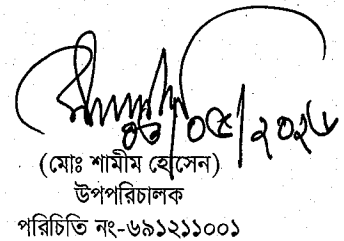 /০৫/২০২৬
(মোঃ শামীম হোসেন)
উপপরিচালক
পরিচিতি নং-৬৯১২১১০০১